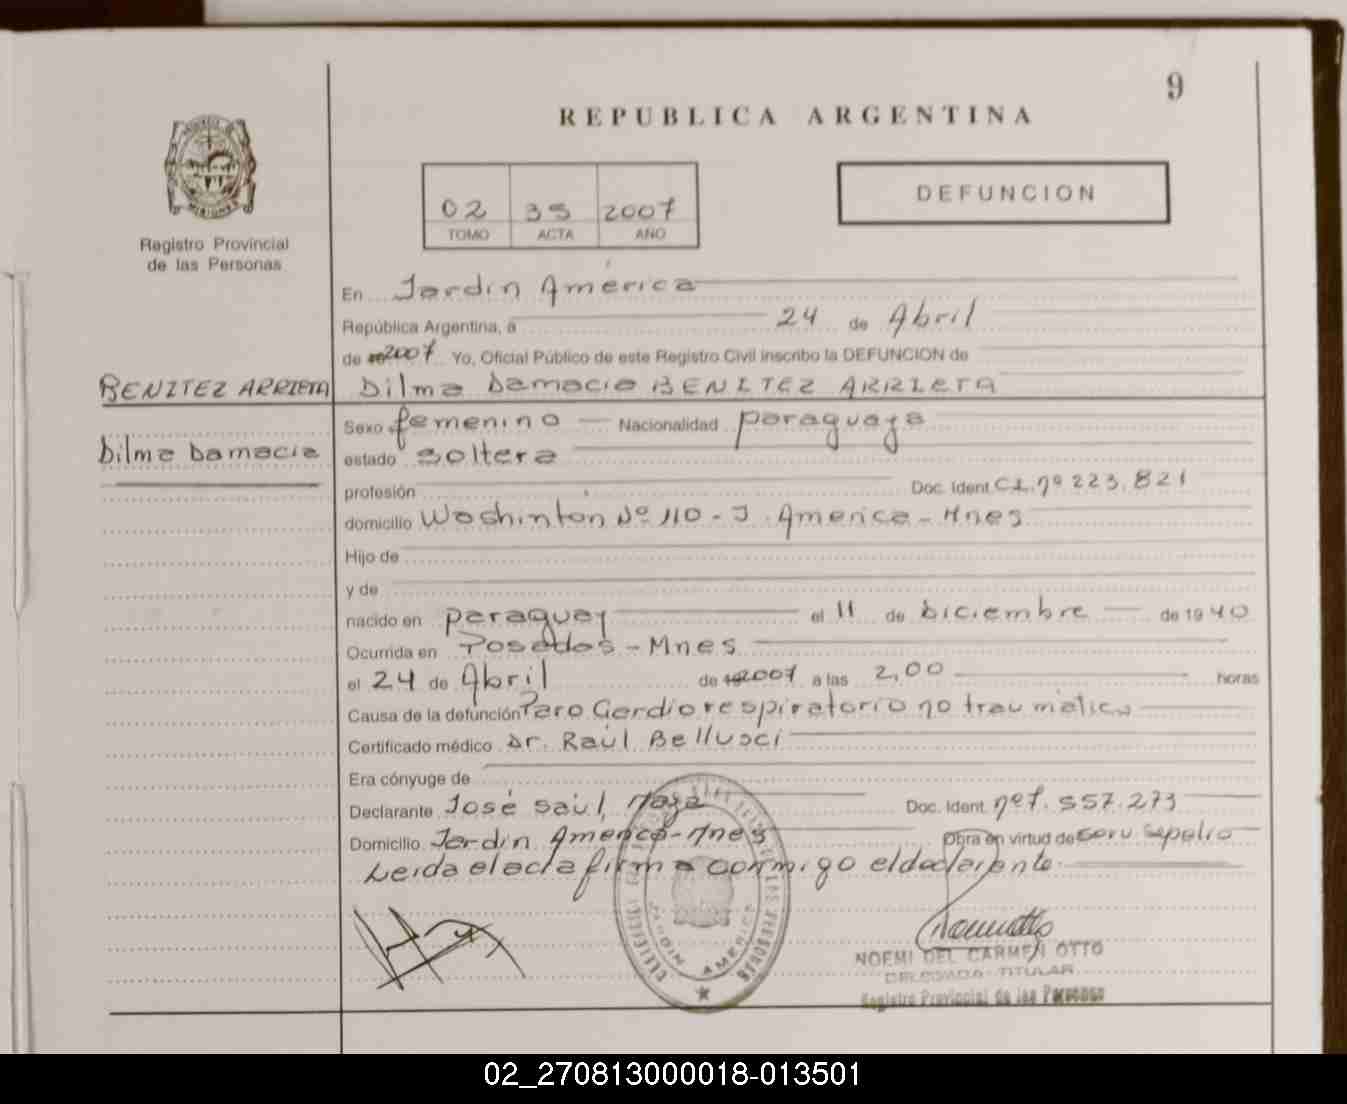 9
REPUBLICA ARGENTINA
MISIONES
Registro Provincial
de las Personas
02 35 2007
TOMO ACTA AÑO
DEFUNCION
En Jardin América
República Argentina, a 24 de Abril
de 2007 Yo, Oficial Público de este Registro Civil inscribo la DEFUNCION de
BENITEZ ARRIETA
Dilma Damacia
Dilma Damacia BENITEZ ARRIETA
Sexo femenino Nacionalidad paraguaya
estado soltera
profesión Doc. Ident. C.I. nº 223.821
domicilio Washinton Nº 110 - J. America - Mnes
Hijo de
y de
nacido en paraguay el 11 de Diciembre de 1940
Ocurrida en Posadas - Mnes
el 24 de Abril de 2007 a las 2,00 horas
Causa de la defunción Paro Cardiorespiratorio no traumatico
Certificado médico Dr. Raúl Bellusci
Era cónyuge de
Declarante José Saúl, Maya Doc. Ident. nº 7.557.273
Domicilio Jardin America - Mnes Obra en virtud de serv. sepelio
Leida el acta firma conmigo el declarante.
JARDIN AMERICA
NOEMI DEL CARMEN OTTO
DELEGADA TITULAR
Registro Provincial de las Personas
02_270813000018-013501